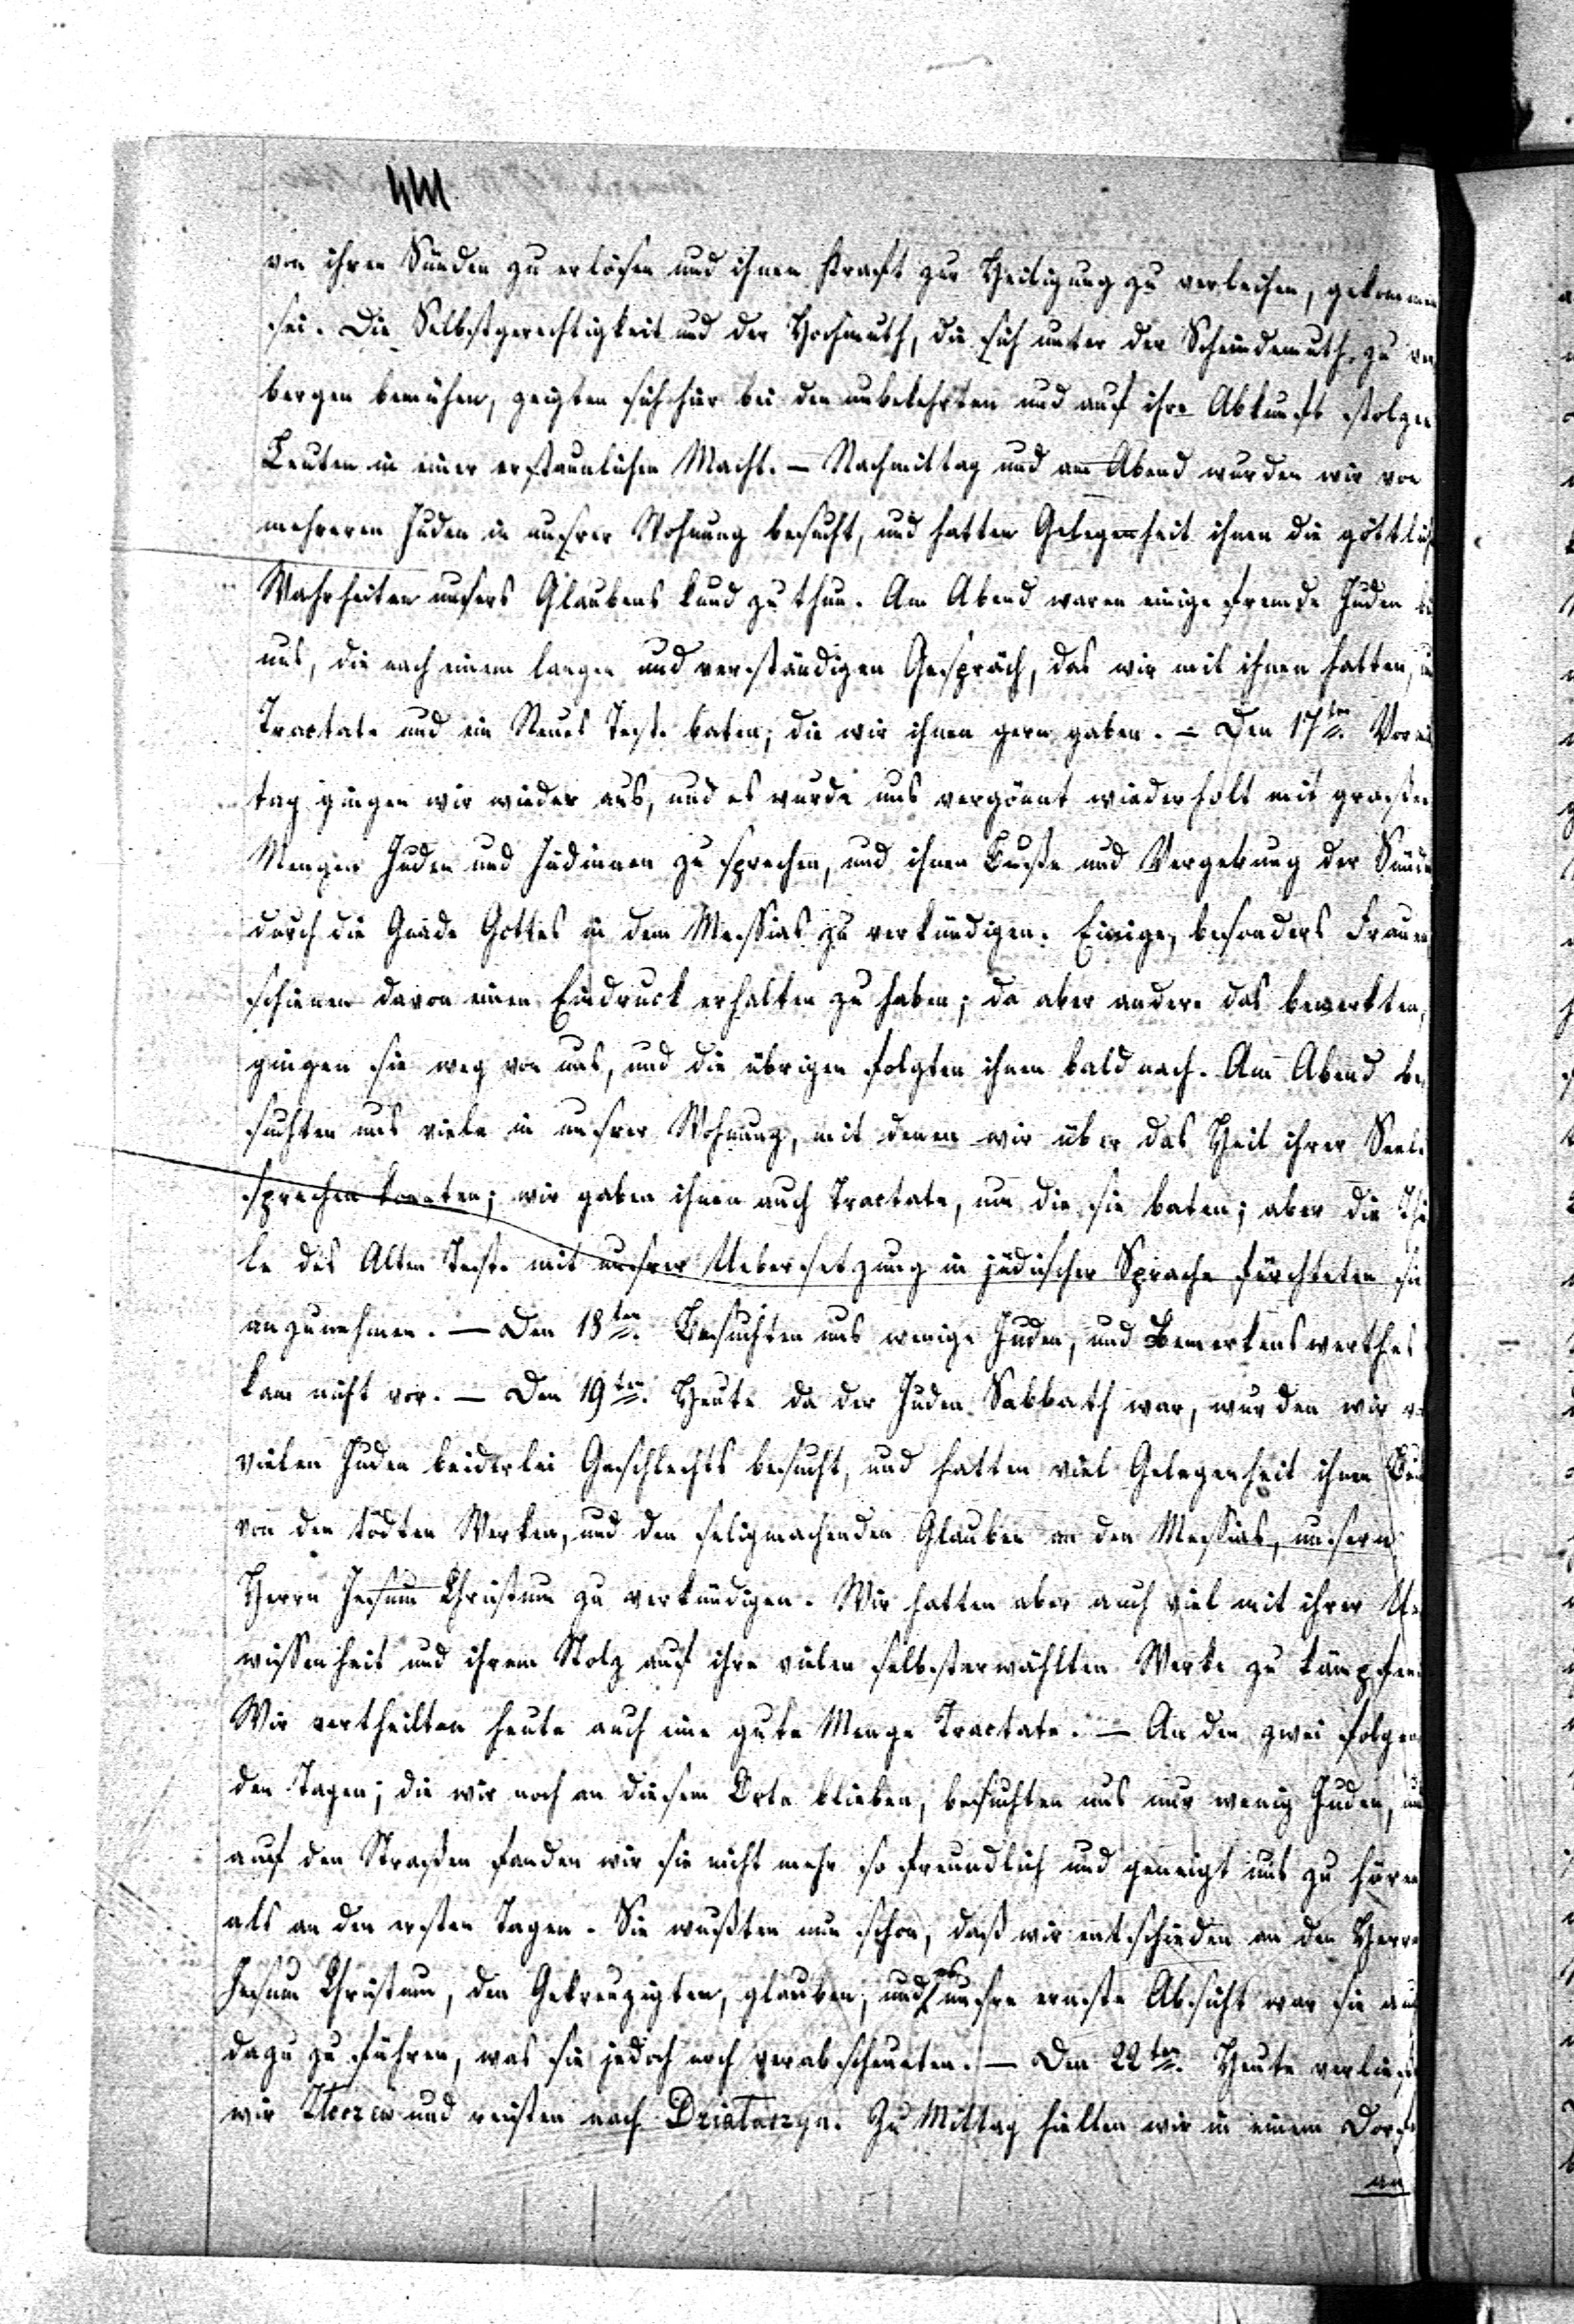 von ihren Sünden zu erlösen und ihnen Kraft zur Heiligung zu verleihen, gekommen
sei. Die Selbstgerechtigkeit und der Hochmuth, die sich unter der Scheindemuth zu ver
bergen bemühen, zeigten sich hier bei den unbekehrten und auf ihre Abkunft stolzen
Leuten in einer erstaunlichen Macht. — Nachmittag und am Abend wurden wir von
mehreren Juden in unsrer Wohnung besucht, und hatten Gelegenheit ihnen die göttlich
Wahrheiten unsers Glaubens kund zu thun. Am Abend waren einige fremde Juden bei
uns, die nach einem langen und verständigen Gespräch, das wir mit ihnen hatten, um
Tractate und ein Neues Test. baten, die wir ihnen gern gaben. — Den 17ten Vormit
tag gingen wir wieder aus, und es wurde uns vergönnt wiederholt mit großen
Mengen Juden und Jüdinnen zu sprechen, und ihnen Buße und Vergebung der Sünden
durch die Gnade Gottes in dem Messias zu verkündigen. Einige, besonders Frauen,
schienen davon einen Eindruck erhalten zu haben; da aber andere das bemerkten,
gingen sie weg von uns, und die übrigen folgten ihnen bald nach. Am Abend be
suchten uns viele in unsrer Wohnung, mit denen wir über das Heil ihrer Seele
sprechen konnten; wir gaben ihnen auch Tractate, um die sie baten; aber die Thei
le des Alten Test. mit unsrer Uebersetzung in jüdischer Sprache fürchteten sie
anzunehmen. — Den 18ten. Besuchten uns wenige Juden, und Bemerkenswerthes
kam nicht vor. — Den 19ten. Heute da der Juden Sabbath war, wurden wir von
vielen Juden beiderlei Geschlechts besucht, und hatten viel Gelegenheit ihnen Buße
von den todten Werken, und den seligmachenden Glauben an den Messias, unsern
Herrn Jesum Christum zu verkündigen. Wir hatten aber auch viel mit ihrer Un
wissenheit und ihrem Stolz auf ihre vielen selbsterwählten Werke zu kämpfen.
Wir vertheilten heute auch eine gute Menge Tractate. — An den zwei folgen
den Tagen, die wir noch an diesem Orte blieben, besuchten uns nur wenig Juden, und
auf den Straßen fanden wir sie nicht mehr so freundlich und geneigt uns zu hören
als an den ersten Tagen. Sie wußten nun schon, daß wir entschieden an den Herrn
Jesum Christum, den Gekreuzigten, glauben, und unsre ernste Absicht war sie auch
dazu zu führen, was sie jedoch noch verabscheueten. — Den 22ten. Heute verließen
wir und reisten nach Działoszyn. Zu Mittag hielten wir in einem Dorfe
an